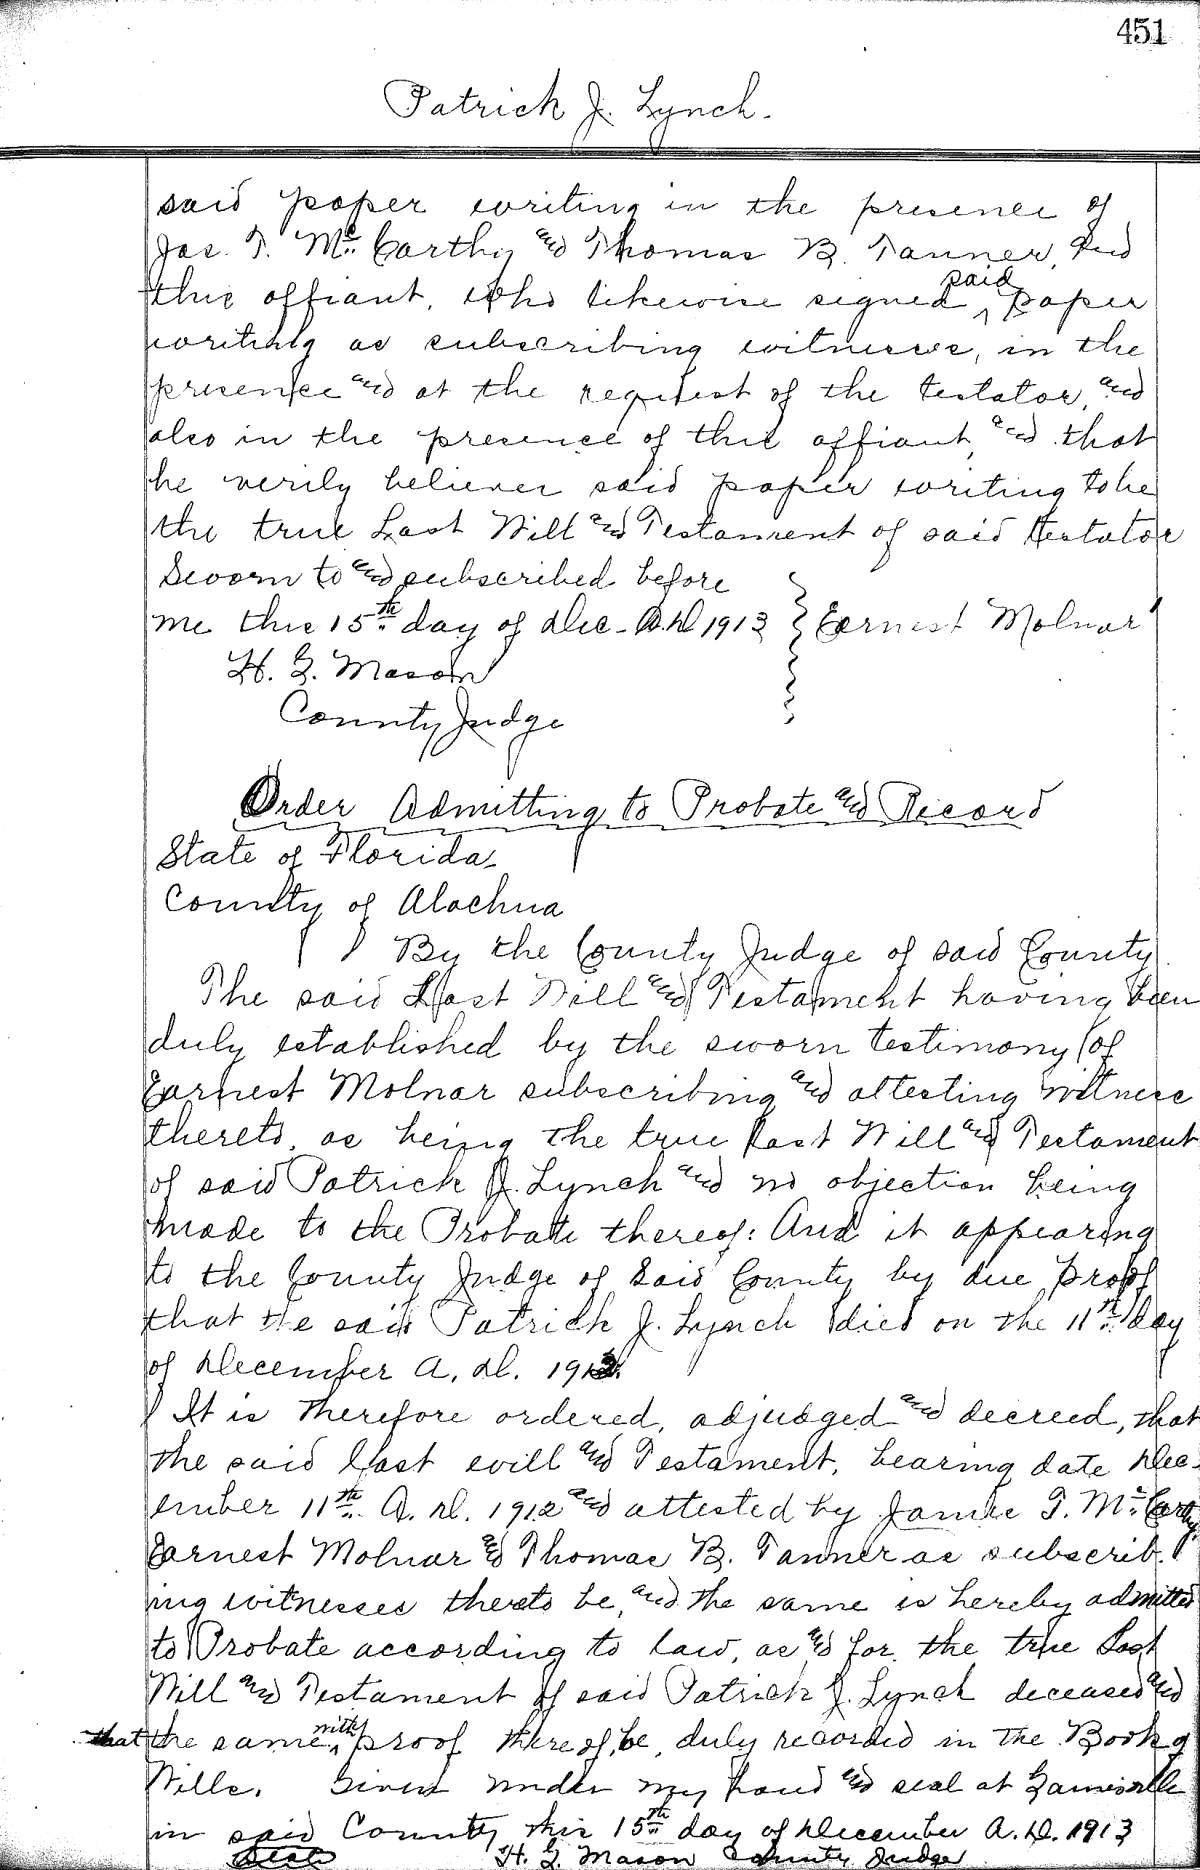 451
Patrick J. Lynch.
said paper writing in the presence of
Jas. T. McCarthy and Thomas B. Tanner, and
this affiant, who likewise signed said paper
writing as subscribing witnesses, in the
presence and at the request of the testator, and
also in the presence of this affiant, and that
he verily believes said paper writing to be
the true Last Will and Testament of said testator
Sworn to and subscribed before
me this 15th day of Dec. A.D 1913 Earnest Molnar
H. G. Mason
County Judge
Order Admitting to Probate and Record
State of Florida
County of Alachua
By the County Judge of said County.
The said Last Will and Testament having been
duly established by the sworn testimony of
Earnest Molnar subscribing and attesting witness
thereto, as being the true last Will and Testament
of said Patrick J. Lynch and no objection being
made to the Probate thereof: And it appearing
to the County Judge of said County by due proof
that the said Patrick J. Lynch died on the 11th day
of December A. D.
It is therefore ordered, adjudged and decreed, that
the said last will and Testament, bearing date Dec-
ember 11th A. D. 1912 and attested by James T. McCarthy
Earnest Molnar and Thomas B. Tanner as subscrib-
ing witnesses thereto be, and the same is hereby admitted
to Probate according to law, as and for the true Last
Will and Testament of said Patrick J. Lynch deceased and
that the same with proof thereof, be, duly recorded in the Book of
Wills. Given under my hand and seal at Gainesville
in said County this 15th day of December A.D. 1913
Seal H. G. Mason County Judge